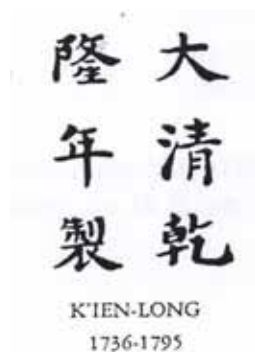 大清乾
隆年製
K'IEN-LONG
1736-1795